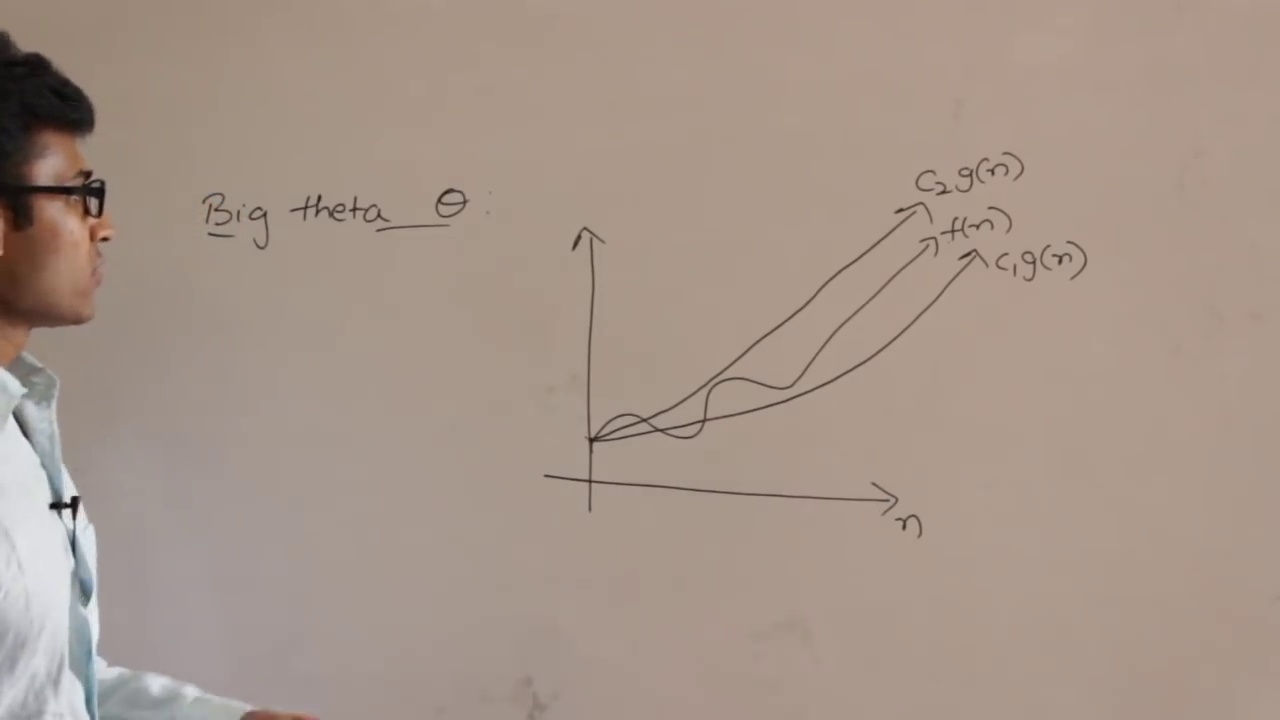 Big theta θ:
c₂g(n)
f(n)
c₁g(n)
n